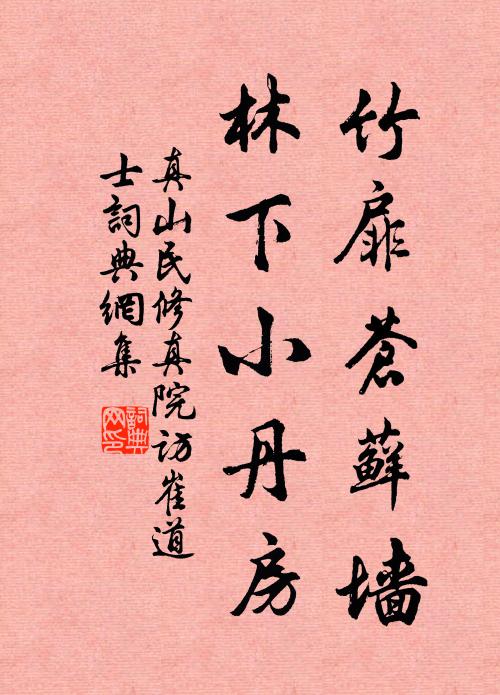 竹扉蒼蘚墙
林下小丹房
真山民修真院訪崔道
士詞典網集
詞典网印